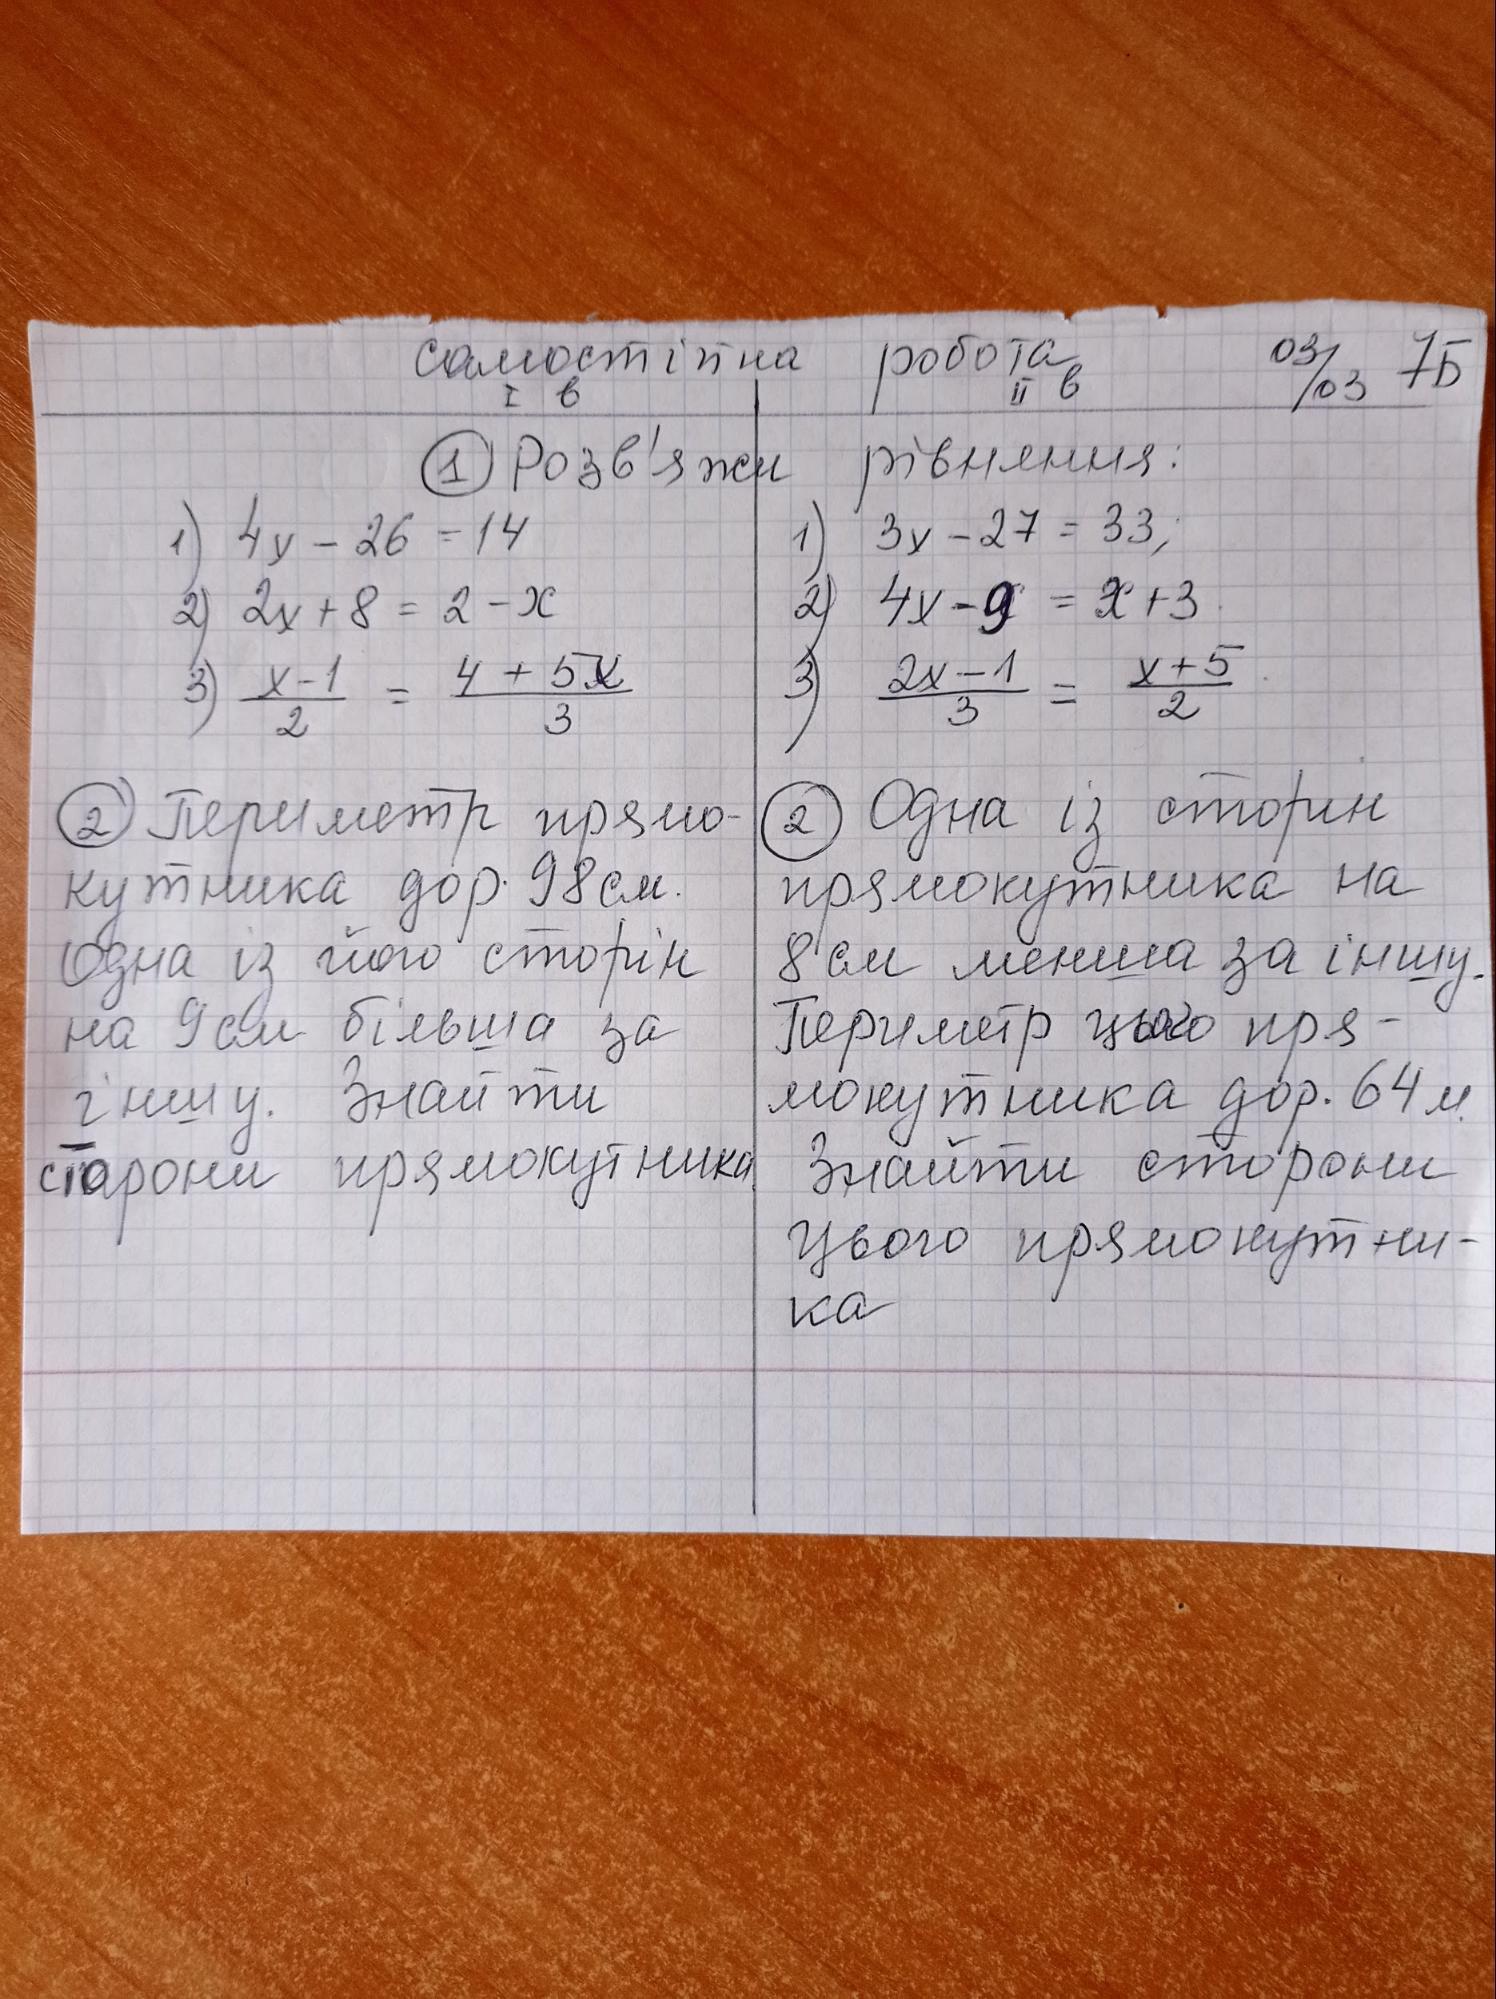 самостійна робота 03/03 7Б
I в II в
1 Розв'яжи рівняння:
1) 4x - 26 = 14
2) 2x + 8 = 2 - x
3) x - 1 / 2 = 4 + 5x / 3
2 Периметр прямо-
кутника дор. 98 см.
Одна із його сторін
на 9 см більша за
іншу. Знайти
сторони прямокутника.
1) 3x - 27 = 33;
2) 4x - 9 = x + 3.
3) 2x - 1 / 3 = x + 5 / 2.
2 Одна із сторін
прямокутника на
8 см менша за іншу.
Периметр цього пря-
мокутника дор. 64 м.
Знайти сторони
цього прямокутни-
ка